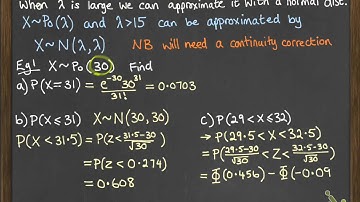 When λ is large we can approximate it with a normal dist.
X~Po(λ) and λ>15 can be approximated by
X~N(λ,λ) NB will need a continuity correction
Eg1 X~Po(30) Find
a) P(X=31) = e^-30 30^31 / 31! = 0.0703
b) P(X≤31) X~N(30,30)
P(X<31.5) = P(Z< 31.5-30 / √30)
= P(Z<0.274)
= 0.608
c) P(29<X≤32)
→ P(29.5<X<32.5)
= P(29.5-30 / √30 <Z< 32.5-30 / √30)
= Φ(0.456) - Φ(-0.09